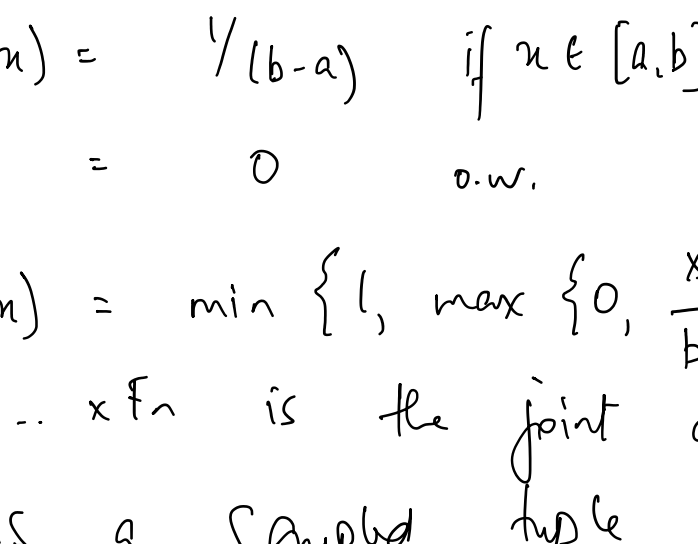 x) = 1/(b-a) if x ∈ [a,b]
= 0 o.w.
x) = min {1, max {0, x
b
.. x Fn is the joint
a sampled tuple